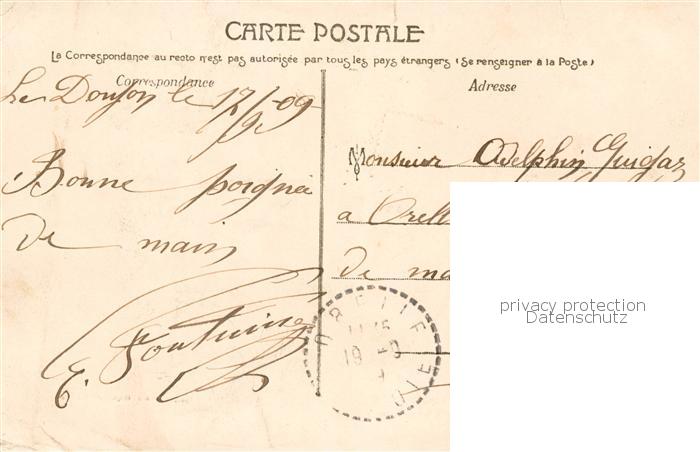 CARTE POSTALE
La Correspondance au recto n'est pas autorisée par tous les pays étrangers (Se renseigner à la Poste)
Correspondance
Adresse
Le Donjon le 17/9-09
Monsieur Adelphin
Bonne poignée
a
de main
de
E. Fontaine
ORELLE
19 -9
privacy protection
Datenschutz